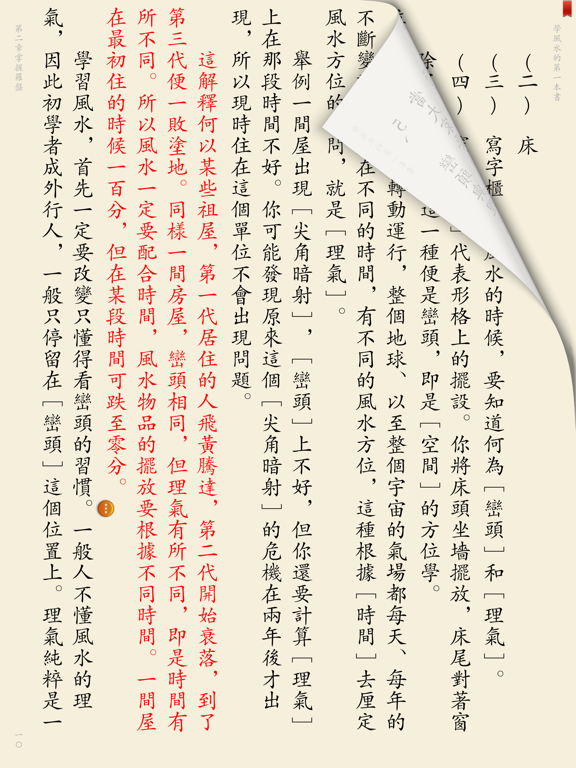 學風水的第一本書
(二) 床
(三) 寫字櫃 風水的時候，要知道何為［巒頭］和［理氣］。
(四) ］代表形格上的擺設。你將床頭坐墻擺放，床尾對著窗
除 這一種便是巒頭，即是［空間］的方位學。
轉動運行，整個地球、以至整個宇宙的氣場都每天、每年的
不斷變 在不同的時間，有不同的風水方位，這種根據［時間］去厘定
風水方位的 問，就是［理氣］。
舉例一間屋出現［尖角暗射］，［巒頭］上不好，但你還要計算［理氣］
上在那段時間不好。你可能發現原來這個［尖角暗射］的危機在兩年後才出
現，所以現時住在這個單位不會出現問題。
這解釋何以某些祖屋，第一代居住的人飛黃騰達，第二代開始衰落，到了
第三代便一敗塗地。同樣一間房屋，巒頭相同，但理氣有所不同，即是時間有
所不同。所以風水一定要配合時間，風水物品的擺放要根據不同時間。一間屋
在最初住的時候一百分，但在某段時間可跌至零分。
學習風水，首先一定要改變只懂得看巒頭的習慣。一般人不懂風水的理
氣，因此初學者成外行人，一般只停留在［巒頭］這個位置上。理氣純粹是一
第二章掌握羅盤
一〇